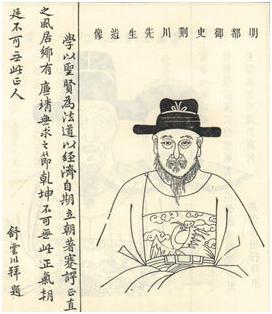 明都御史川先生道像
學以聖賢為法道以經濟自期立朝著謇諤正直
之風居鄉有廉靖無求之節乾坤不可無此正氣朝
廷不可無此正人
舒雲川拜題